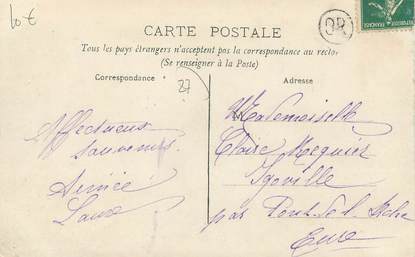 10 €
OR
CARTE POSTALE
Tous les pays étrangers n'acceptent pas la correspondance au recto
(Se renseigner à la Poste)
Correspondance
27
Adresse
Affectueux
souvenirs
Aimée
Mademoiselle
Claire
Igoville
par Pont de l'Arche
Eure